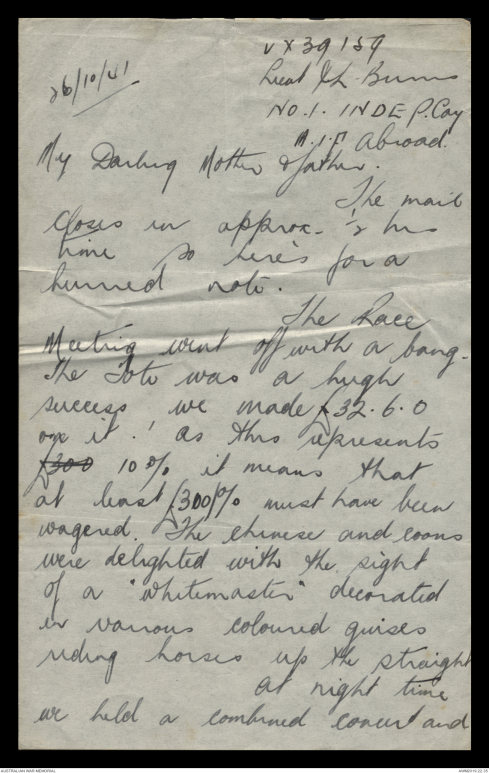 VX39159
26/10/41
Lieut J L Burns
NO.1. INDEP. Coy
A.I.F. Abroad.
My Darling Mother & father.
The mail
closes in approx. ½ hrs
time so here's for a
hurried note.
The Race
Meeting went off with a bang.
The Tote was a hugh
success we made £32.6.0
on it! as this represents
£300 10% it means that
at least £300/% must have been
wagered. The chinese and coons
were delighted with the sight
of a "whitemaster" decorated
in various coloured guises
riding horses up the straight
At night time
we held a combined concert and
AUSTRALIAN WAR MEMORIAL